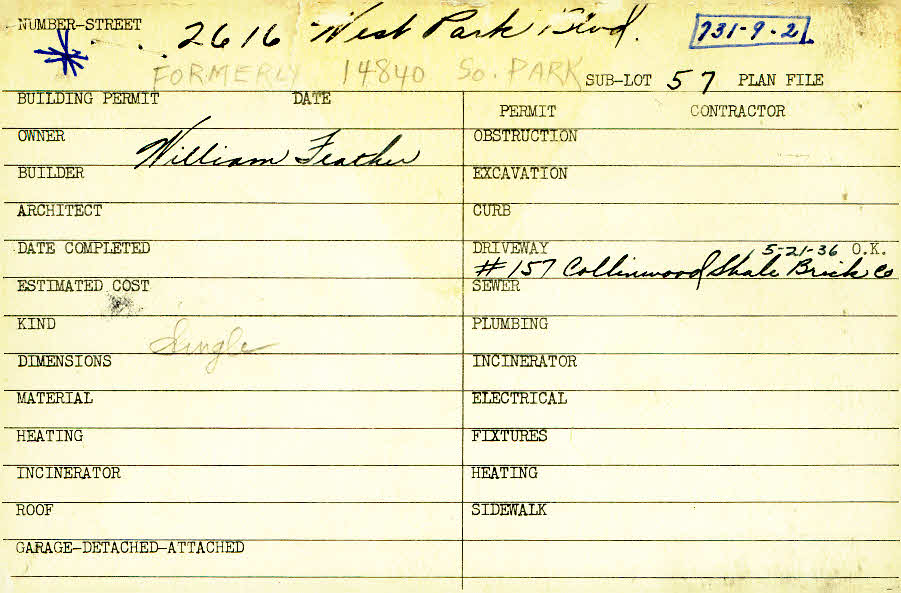 NUMBER-STREET 2616 West Park Blvd. 731-9-2
FORMERLY 14840 So. PARK SUB-LOT 57 PLAN FILE
BUILDING PERMIT DATE
PERMIT CONTRACTOR
OWNER William Feather
OBSTRUCTION
BUILDER
EXCAVATION
ARCHITECT
CURB
DATE COMPLETED
DRIVEWAY 5-21-36 O.K.
#157 Collinwood Shale Brick Co
ESTIMATED COST
SEWER
KIND Single
PLUMBING
DIMENSIONS
INCINERATOR
MATERIAL
ELECTRICAL
HEATING
FIXTURES
INCINERATOR
HEATING
ROOF
SIDEWALK
GARAGE-DETACHED-ATTACHED